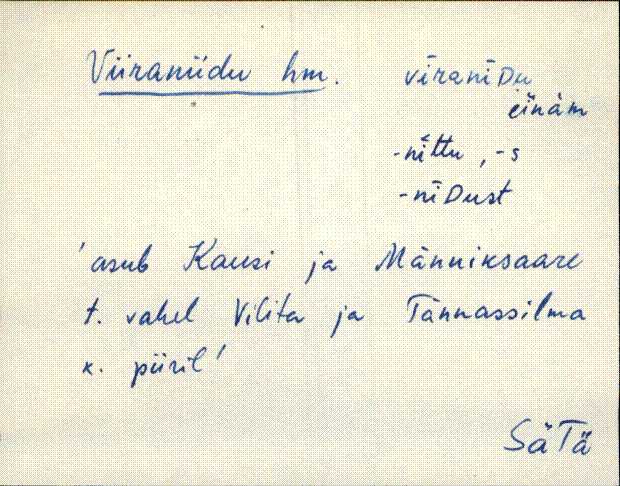 Viiraniidu hm. vīranīDu
einàm
-nīttu, -s
-nīDust
'asub Kausi ja Männiksaare
t. vahel Vilita ja Tännassilma
k. piiril'
SäTä